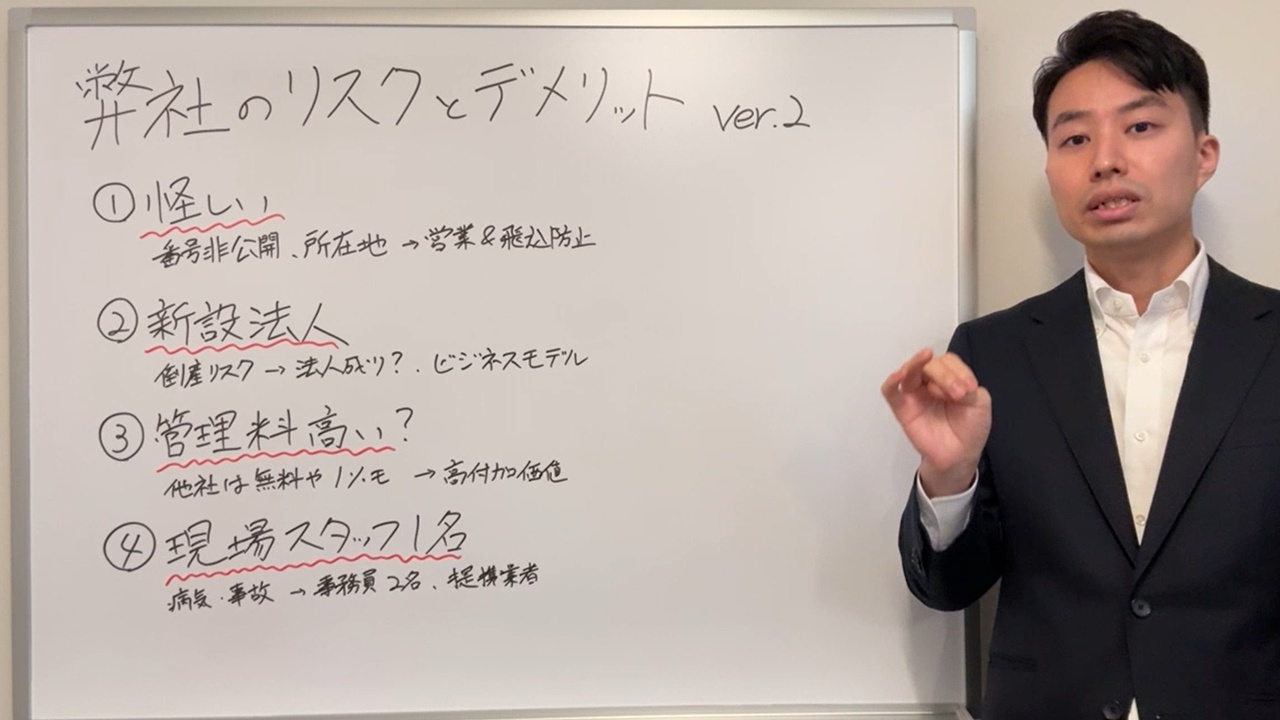 弊社のリスクとデメリット ver.2
①怪しい
番号非公開、所在地→営業&飛込防止
②新設法人
倒産リスク→法人成り?、ビジネスモデル
③管理料高い?
他社は無料や1%も→高付加価値
④現場スタッフ1名
病気・事故→事務員2名、提携業者